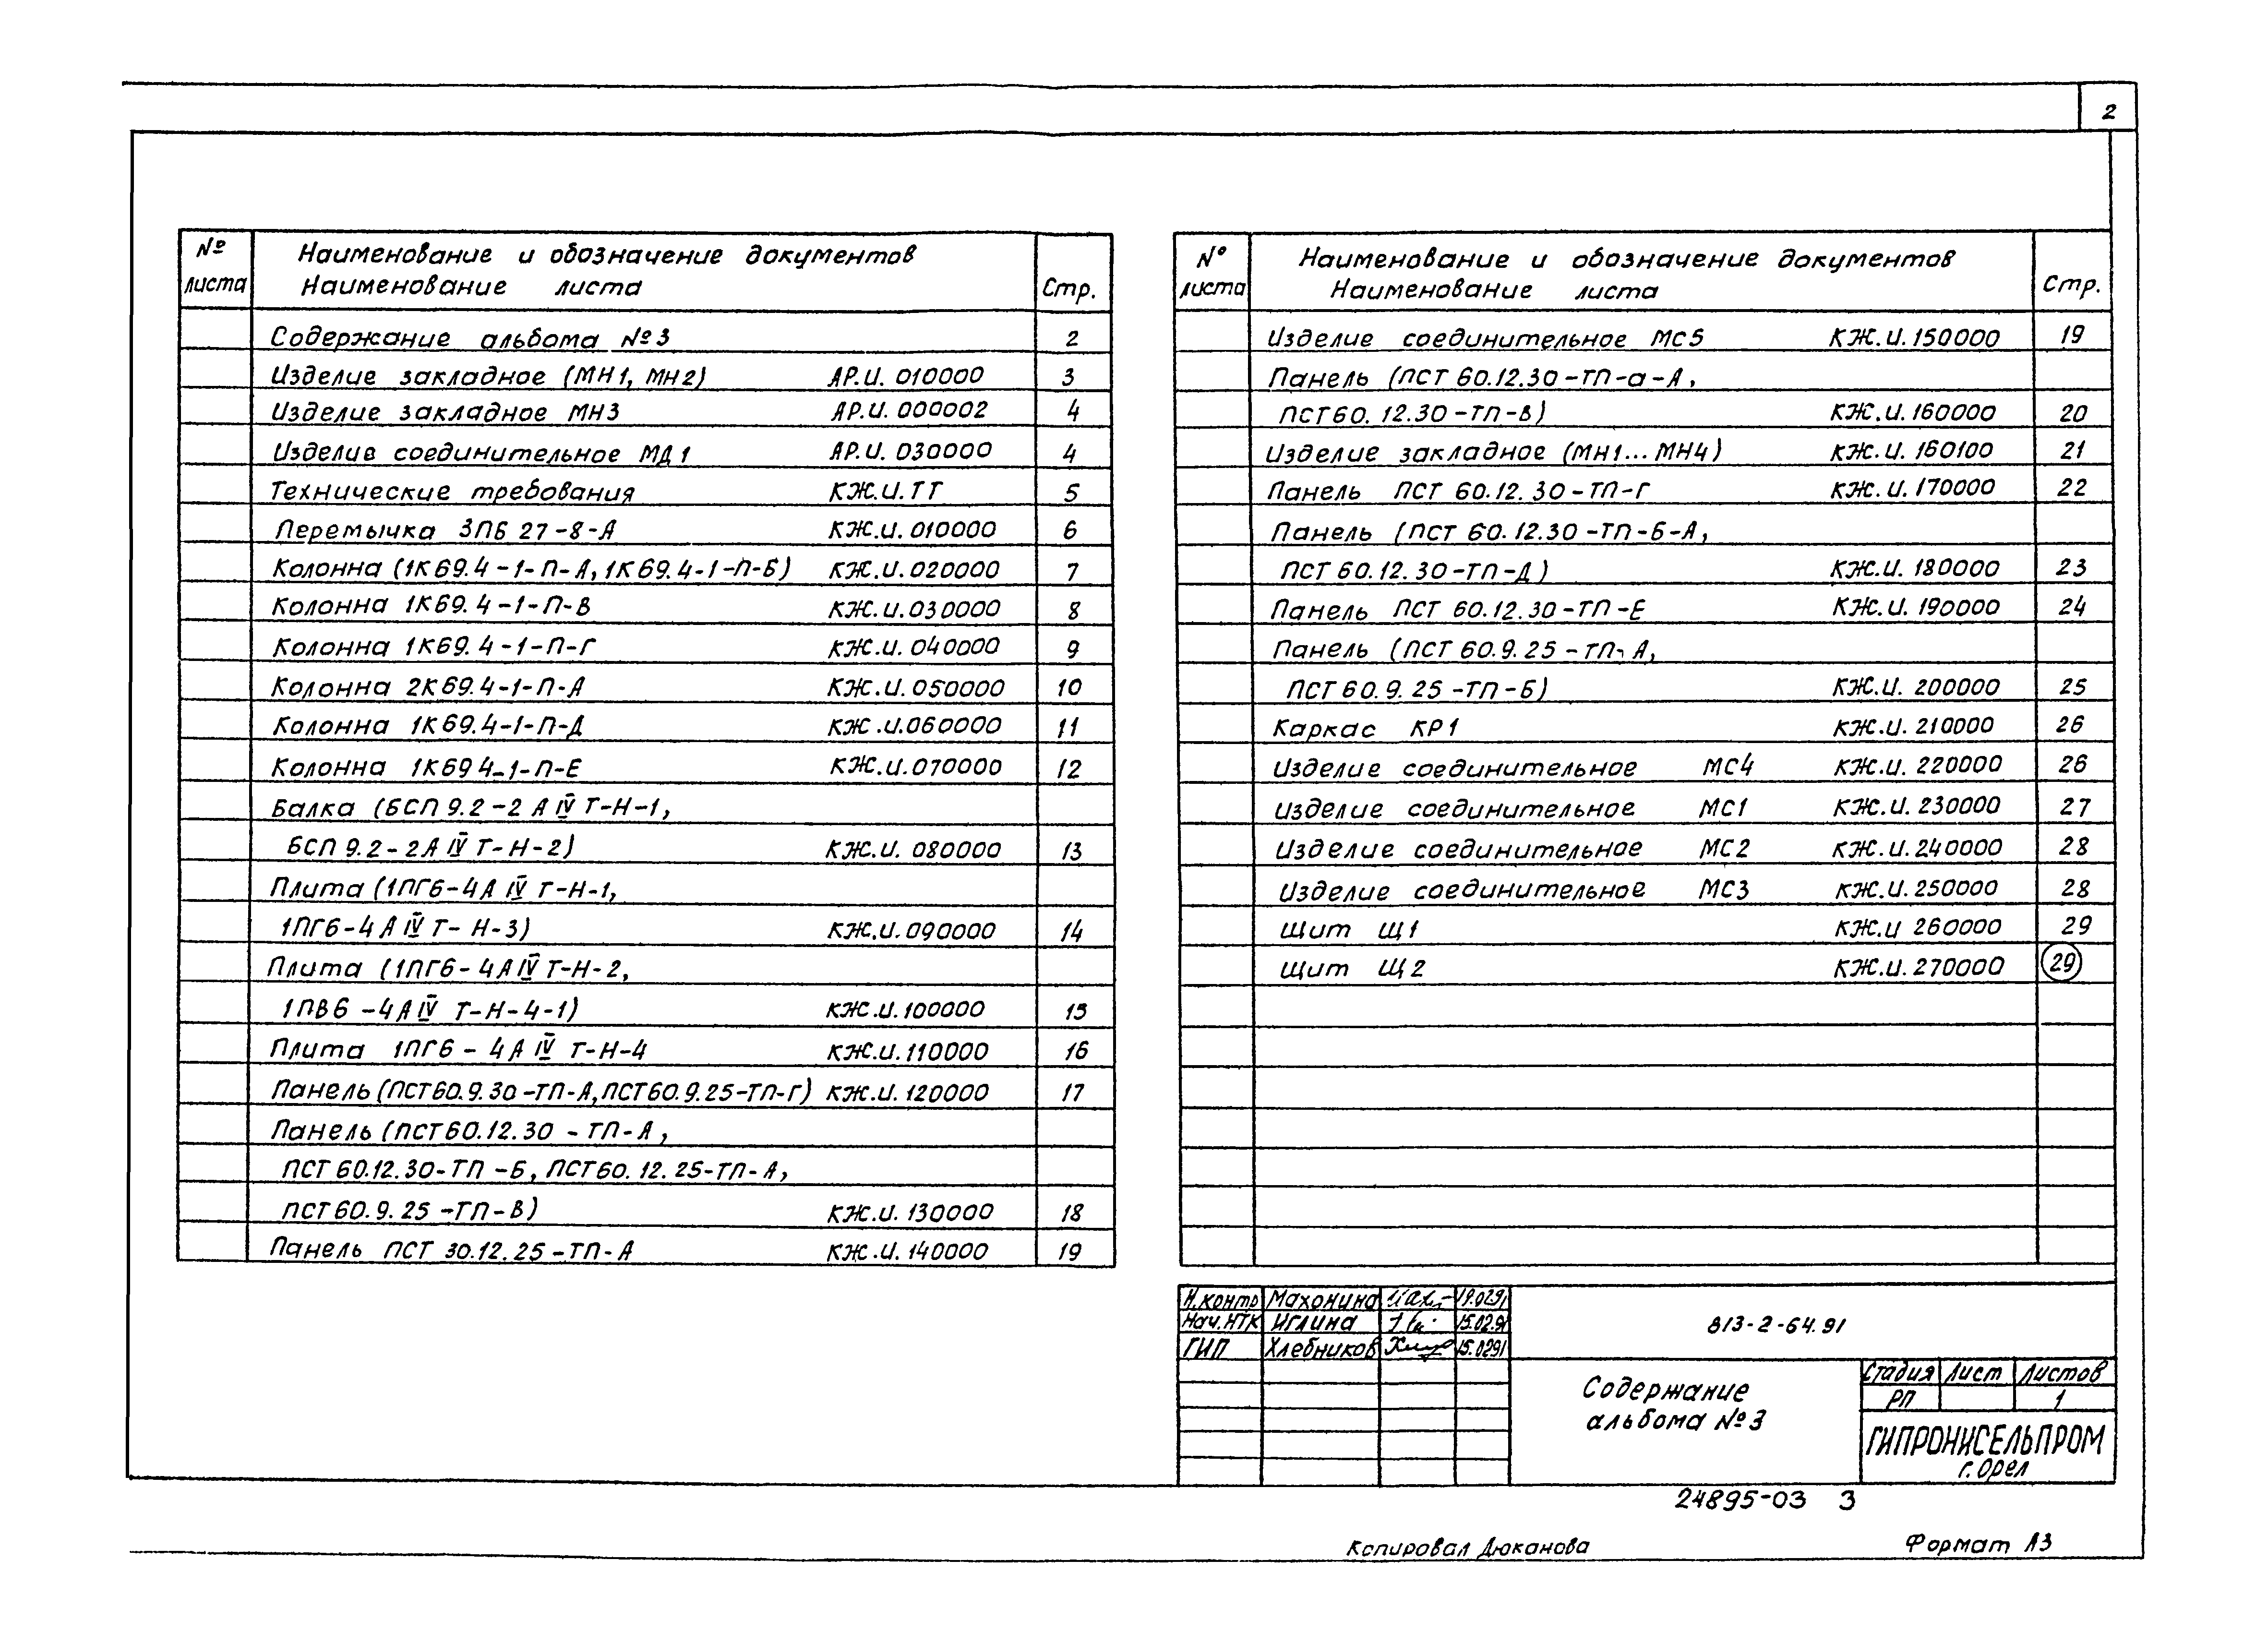 2
№ листа Наименование и обозначение документов Стр.
Наименование листа
Содержание альбома №3 2
Изделие закладное (МН1, МН2) АР.И. 010000 3
Изделие закладное МН3 АР.И. 000002 4
Изделие соединительное МД1 АР.И. 030000 4
Технические требования КЖ.И.ТТ 5
Перемычка 3ПБ 27-8-А КЖ.И. 010000 6
Колонна (1К69.4-1-П-А, 1К69.4-1-П-Б) КЖ.И.020000 7
Колонна 1К69.4-1-П-В КЖ.И.030000 8
Колонна 1К69.4-1-П-Г КЖ.И. 040000 9
Колонна 2К69.4-1-П-А КЖ.И. 050000 10
Колонна 1К69.4-1-П-Д КЖ.И.060000 11
Колонна 1К69 4-1-П-Е КЖ.И.070000 12
Балка (БСП 9.2-2 А IV Т-Н-1,
БСП 9.2-2А IV Т-Н-2) КЖ.И. 080000 13
Плита (1ПГ6-4А IV Т-Н-1,
1ПГ6-4А IV Т-Н-3) КЖ.И. 090000 14
Плита (1ПГ6-4А IV Т-Н-2,
1ПВ6-4А IV Т-Н-4-1) КЖ.И.100000 15
Плита 1ПГ6-4А IV Т-Н-4 КЖ.И.110000 16
Панель (ПСТ60.9.30-ТП-А, ПСТ60.9.25-ТП-Г) КЖ.И. 120000 17
Панель (ПСТ60.12.30-ТП-А,
ПСТ 60.12.30-ТП-Б, ПСТ60.12.25-ТП-А,
ПСТ60.9.25-ТП-В) КЖ.И. 130000 18
Панель ПСТ 30.12.25-ТП-А КЖ.И. 140000 19
№ листа Наименование и обозначение документов Стр.
Наименование листа
Изделие соединительное МС5 КЖ.И.150000 19
Панель (ПСТ 60.12.30-ТП-а-А,
ПСТ60.12.30-ТП-В) КЖ.И.160000 20
Изделие закладное (МН1...МН4) КЖ.И. 160100 21
Панель ПСТ 60.12.30-ТП-Г КЖ.И.170000 22
Панель (ПСТ 60.12.30-ТП-Б-А,
ПСТ 60.12.30-ТП-Д) КЖ.И. 180000 23
Панель ПСТ 60.12.30-ТП-Е КЖ.И. 190000 24
Панель (ПСТ 60.9.25-ТП-А,
ПСТ 60.9.25-ТП-Б) КЖ.И. 200000 25
Каркас КР1 КЖ.И. 210000 26
Изделие соединительное МС4 КЖ.И. 220000 26
Изделие соединительное МС1 КЖ.И. 230000 27
Изделие соединительное МС2 КЖ.И.240000 28
Изделие соединительное МС3 КЖ.И.250000 28
Щит Щ1 КЖ.И 260000 29
Щит Щ2 КЖ.И.270000 29
Н.контр Махонина 19.0291
Нач.НТК Иглина 15.02.91
ГИП Хлебников 15.0291
813-2-64.91
Содержание
альбома №3
Стадия Лист Листов
РП 1
ГИПРОНИСЕЛЬПРОМ
г. Орел
24895-03 3
Копировал Дюканова Формат А3